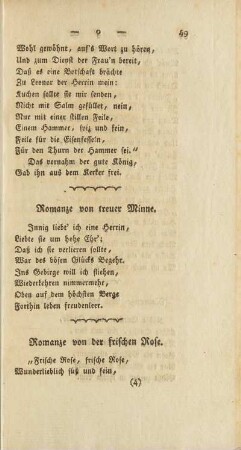 — 9 — 49
Wohl gewöhnt, auf's Wort zu hören,
Und zum Dienst der Frau'n bereit,
Daß es eine Botschaft brächte
Zu Leonor der Herrin mein:
Kuchen sollte sie mir senden,
Nicht mit Salm gefüllet, nein,
Nur mit einer stillen Feile,
Einem Hammer, spiz und fein,
Feile für die Eisenfesseln,
Für den Thurn der Hammer sei."
Das vernahm der gute König,
Gab ihn aus dem Kerker frei.
Romanze von treuer Minne.
Innig liebt' ich eine Herrin,
Liebte sie um hohe Ehr';
Daß ich sie verlieren sollte,
War des bösen Glücks Begehr.
Ins Gebirge will ich fliehen,
Wiederkehren nimmermehr,
Oben auf dem höchsten Berge
Forthin leben freudenleer.
Romanze von der frischen Rose.
„Frische Rose, frische Rose,
Wunderlieblich süß und fein,
(4)